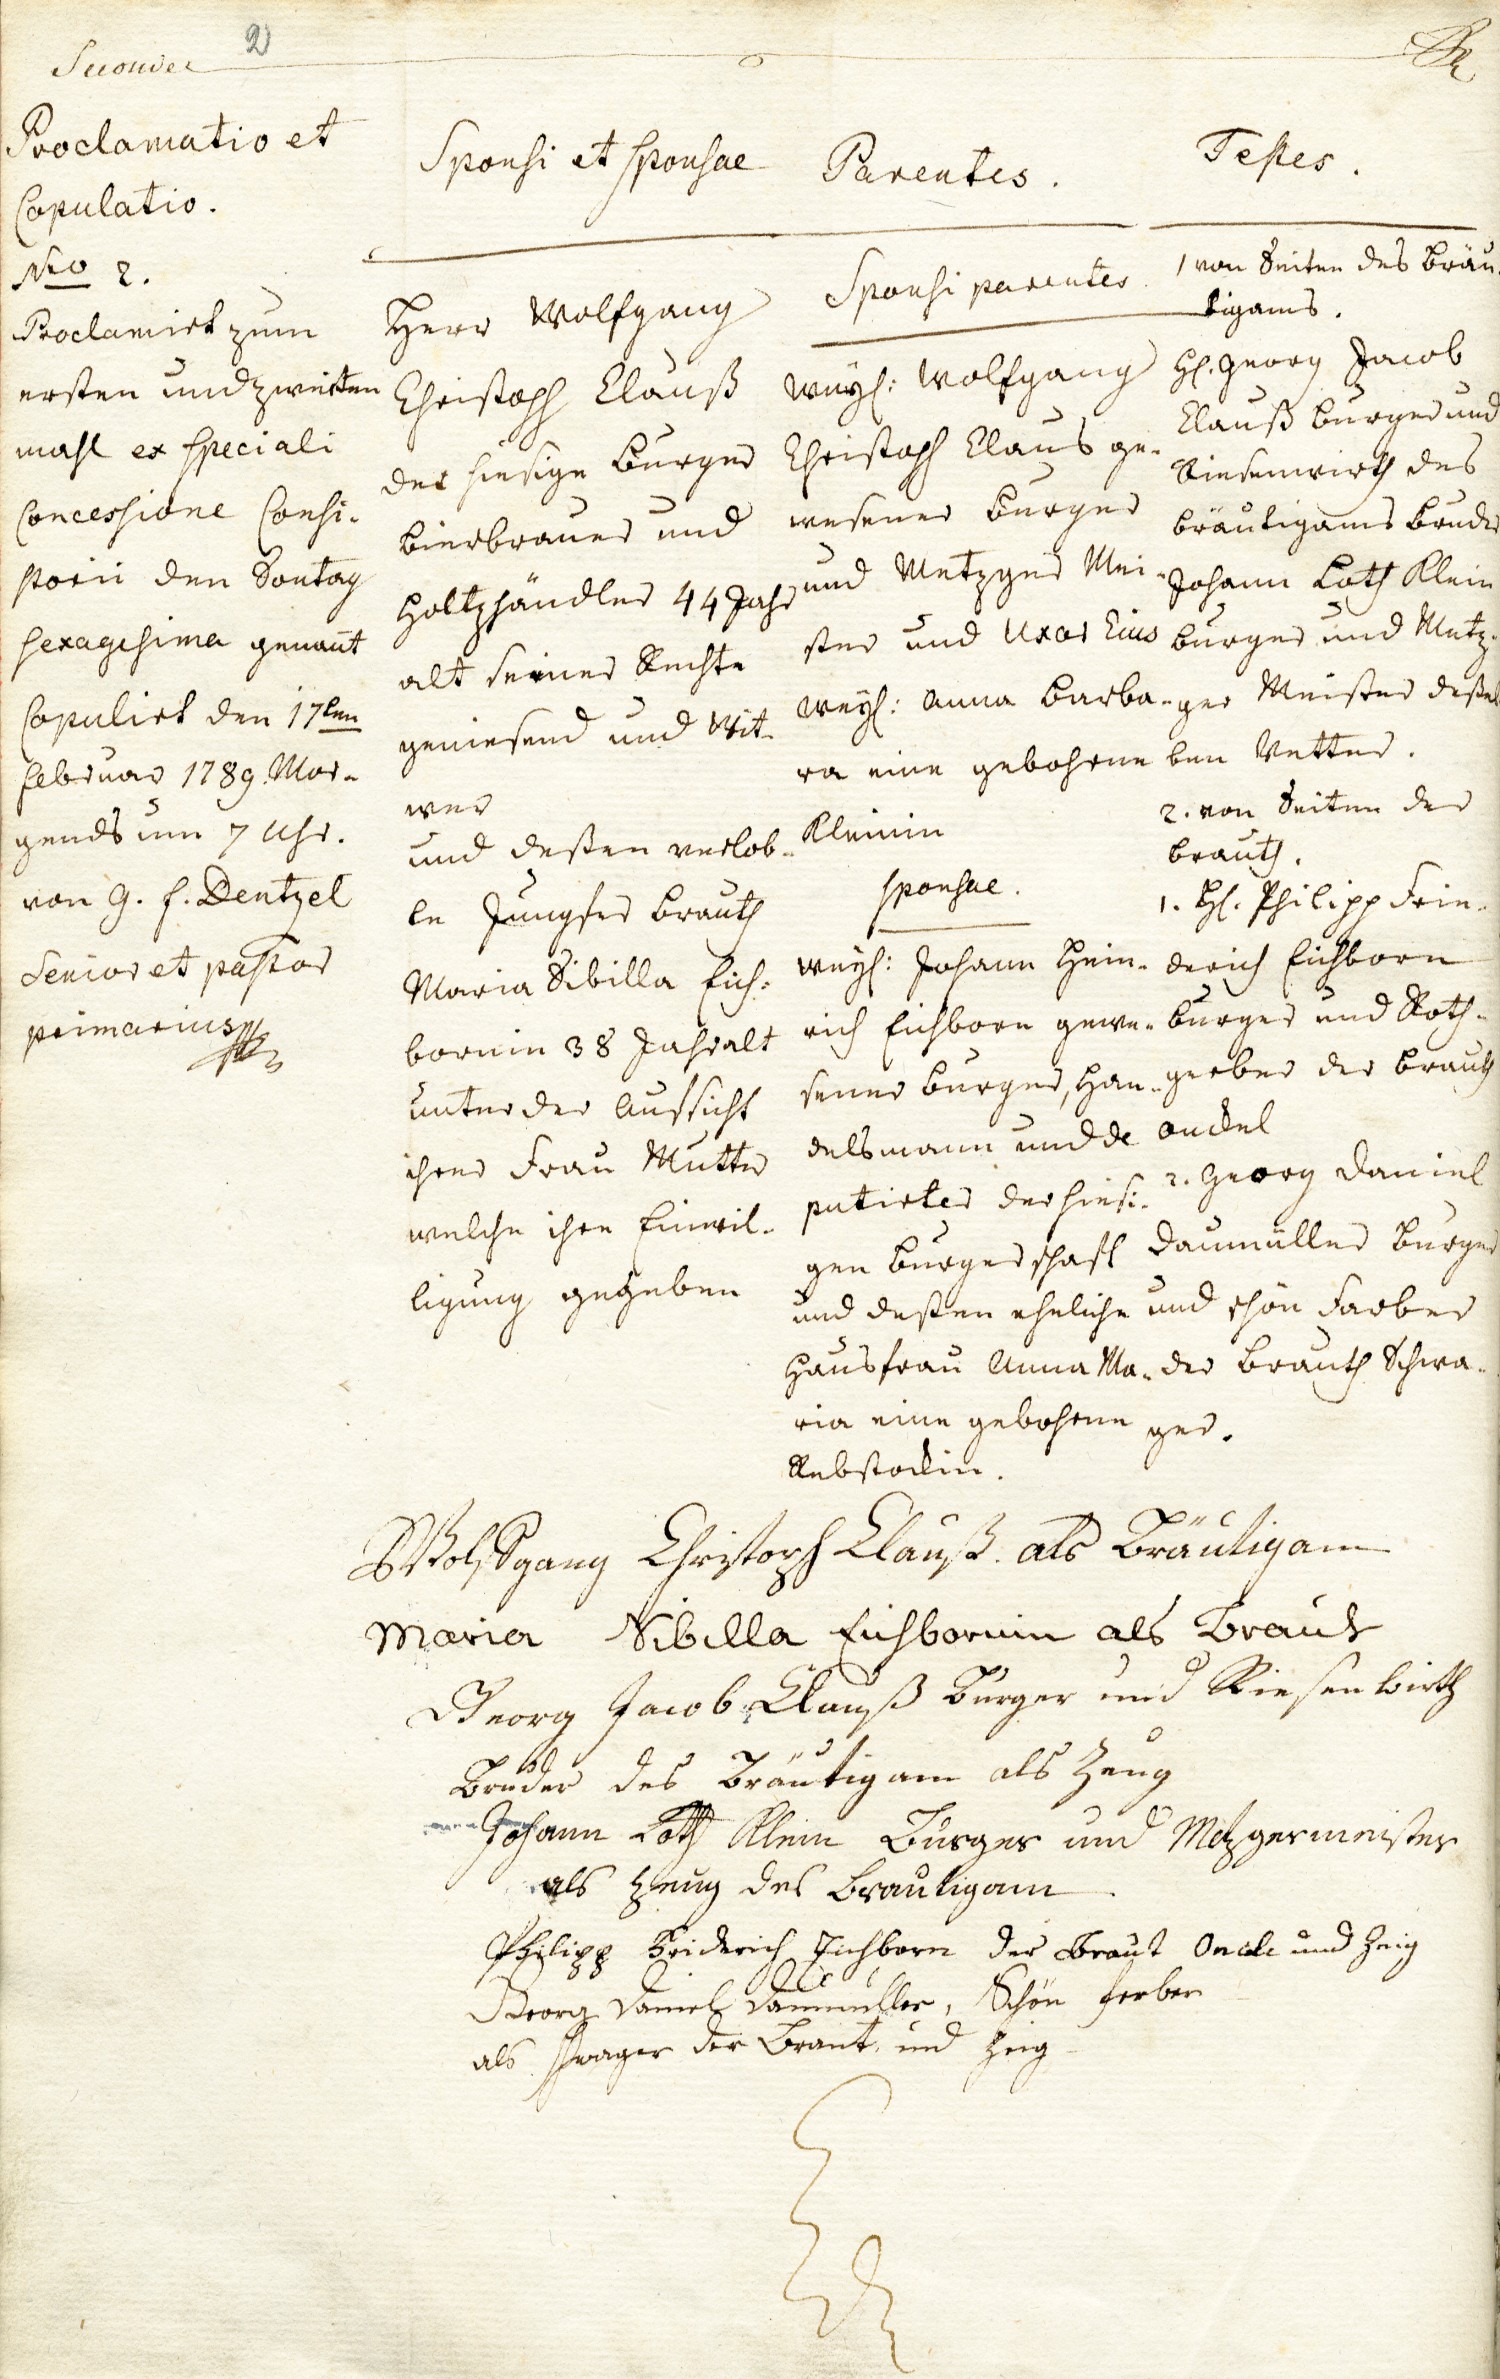 Seconde
2
Proclamatio et
Copulatio.
Nro 2.
Proclamirt zum
ersten und zweiten
mahl ex speciali
Concessione Consi-
storii den Sontag
sexagesima genant
Copulirt den 17ten
Februar 1789. Mor-
gends um 7 Uhr.
von G. F. Dentzel
Senior et pastor
primarius
Sponsi et sponsae
Herr Wolfgang
Christoph Clauß
der hiesige Burger
Bierbrauer und
Holtzhändler 44 Jahr
alt seiner Rechte
geniesend und Wit-
wer
und deßen verlob-
te Jungfer Brauth
Maria Sibilla Eich-
bornin 38 Jahr alt
unter der Aufsicht
ihrer Frau Mutter
welche ihre Einwil-
ligung gegeben
Parentes.
Sponsi parentes
weyl: Wolfgang
Christoph Claus ge-
wesener Burger
und Metzger Mei-
ster und Uxor Eius
weyl: Anna Barba-
ra eine gebohrne
Kleinin
sponsae.
weyl: Johann Hein-
rich Eichborn gewe-
sener Burger, Han-
delsmann und de
putirter der hiesi-
gen Burgerschaft
und deßen eheliche
Hausfrau Anna Ma-
ria eine gebohrne
Rebstockin.
Testes.
1 von Seiten des Bräu-
tigams.
H. Georg Jacob
Clauß Burger und
Riesenwirth des
Bräutigams Bruder
Johann Loth Klein
Burger und Metz-
ger Meister deßel
ben Vetter.
2. von Seiten der
Brauth.
1. H. Philipp Frie-
derich Eichborn
Burger und Roth-
gerber der Brauth
Onckel
2. Georg Daniel
Daumüller Burger
und schön Farber
der Brauth Schwa-
ger.
Wolfgang Christoph Clauß. als Bräutigam
Maria Sibilla Eichbornin als Braut
Georg Jacob Clauß Burger und Riesenwirth
Bruder des Bräutigam als Zeug
Johann Loth Klein Burger und Metzgermeister
als Zeug des Brautigam
Philipp Friderich Eichborn der Braut Oncle und Zeig
Georg Daniel Daumüller, Schön ferber
als schwager der Braut. und Zeig